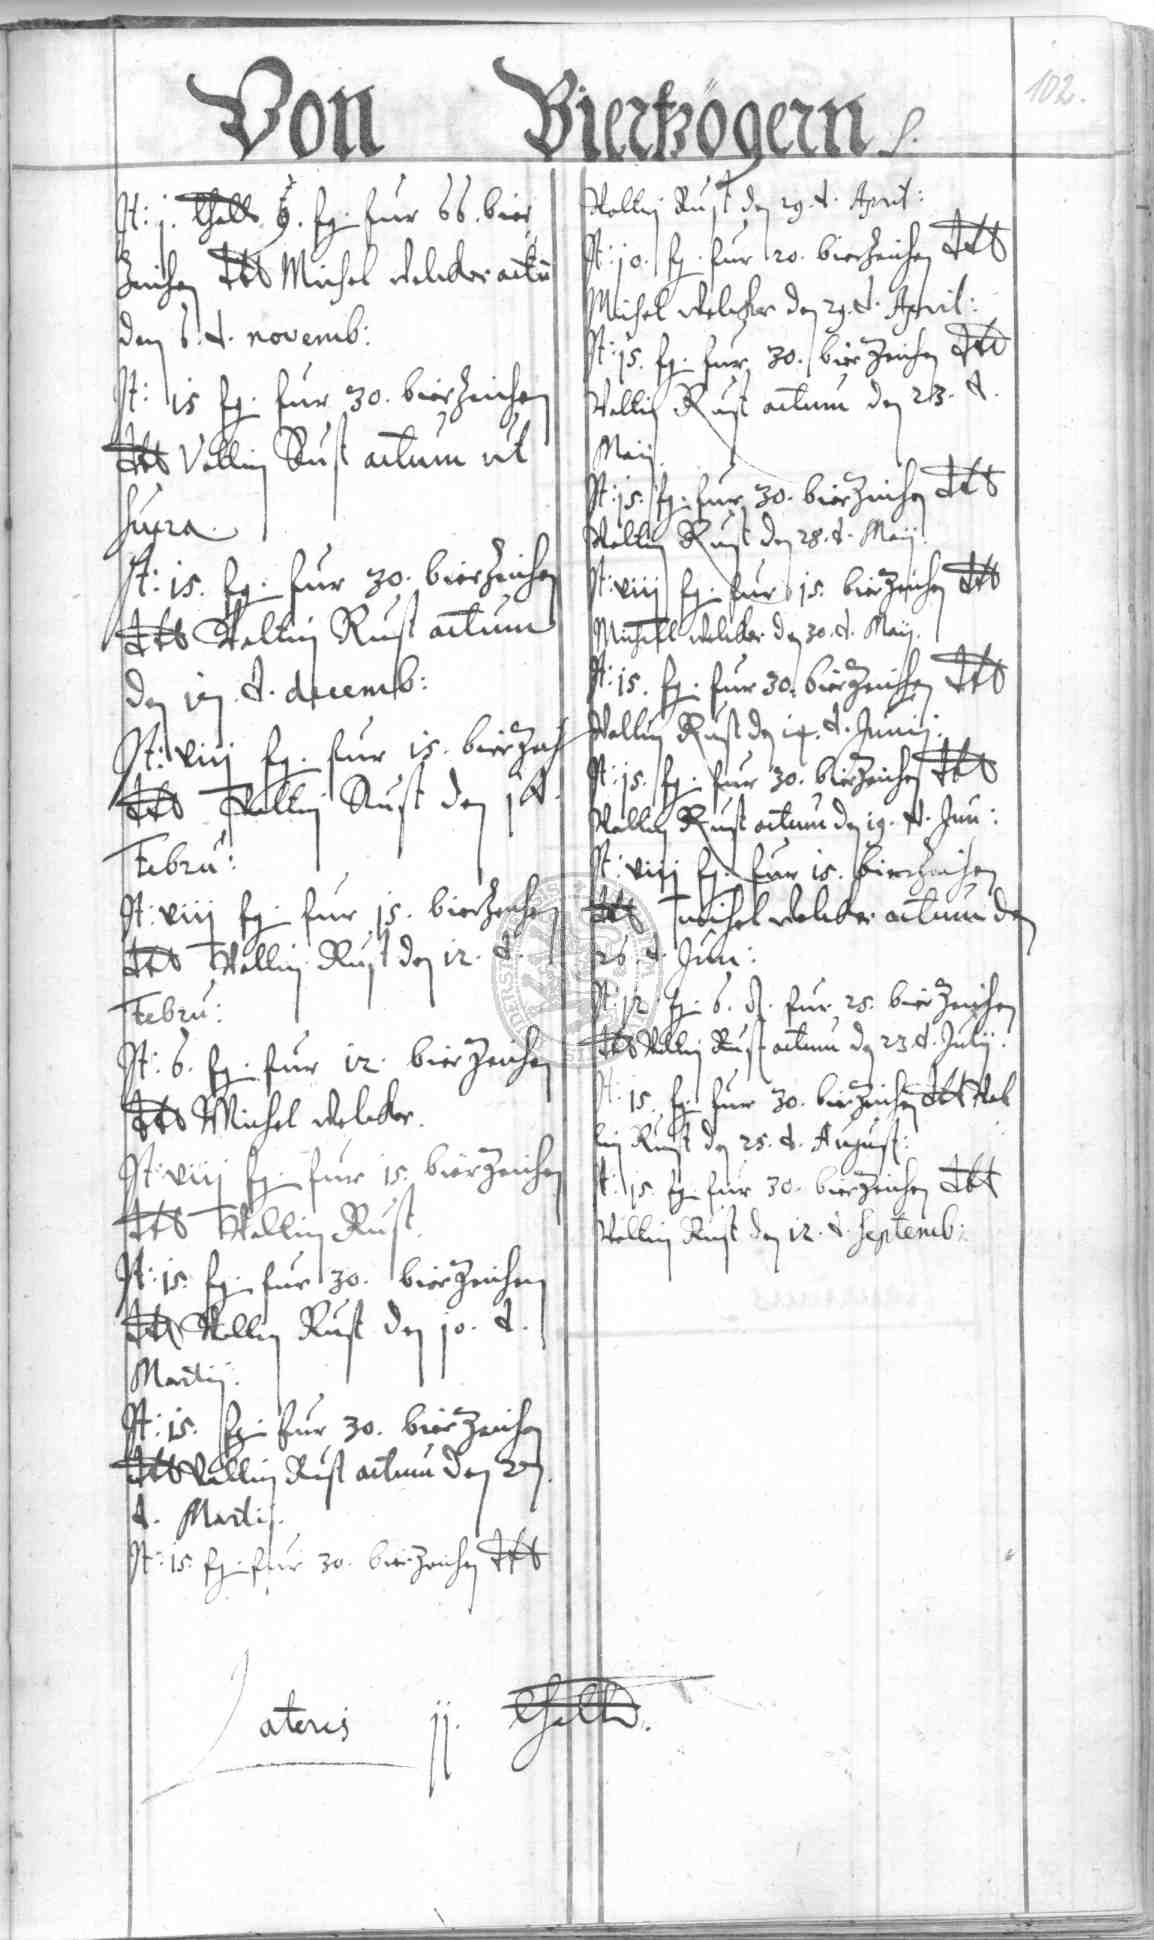 102.
Von Bierzögern
It: j. thall. 9. sg. fur 66. bier
zeichen dedit Michel Welcker actu
den 6. d. novemb:
It: 15 sg. fur 30. bierzeichen
dedit Veltin Rust actum ut
supra.
It: 15. sg. fur 30. bierzeichen
dedit Veltin Rust actum
den d. decemb:
It: viij sg. fur 15. bierzeich
dedit Veltin Rust den
Febru:
It: viij sg. fur 15. bierzeichen
dedit Veltin Rust den 12. d.
Febru:
It: 6. sg. fur 12. bierzeichen
dedit Michel Welcker.
It: viij sg. fur 15. bierzeichen
dedit Veltin Rust.
It: 15. sg. fur 30. bierzeichen
dedit Veltin Rust den 10. d.
Martij.
It: 15. sg. fur 30. bierzeichen
dedit Veltin Rust actum den
d. Martij.
It: 15. sg. fur 30. bierzeichen dedit
Veltin Rust den 29. d. April:
It: 10. sg. fur 20. bierzeichen dedit
Michel Welcker den 29. d. April:
It: 15. sg. fur 30. bierzeichen dedit
Veltin Rust actum den 23. d.
Maij.
It: 15. sg. fur 30. bierzeichen dedit
Veltin Rust den 28. d. Maij.
It: viij sg. fur 15. bierzeichen dedit
Michel Welcker den 30. d. Maij.
It: 15. sg. fur 30. bierzeichen dedit
Veltin Rust den 14. d. Junij.
It: 15. sg. fur 30. bierzeichen dedit
Veltin Rust actum den 19. d. Juni:
It: viij sg. fur 15. bierzeichen
dedit Michel Welcker actum den
26. d. Juni:
It: 12 sg. 6. d. fur 25. bierzeichen
dedit Veltin Rust actum den 23. d. Julij.
It: 15. sg. fur 30. bierzeichen dedit Vel
tin Rust den 25. d. August:
It: 15. sg. fur 30. bierzeichen dedit
Veltin Rust den 12. d. Septemb:
Lateris jj. thall.